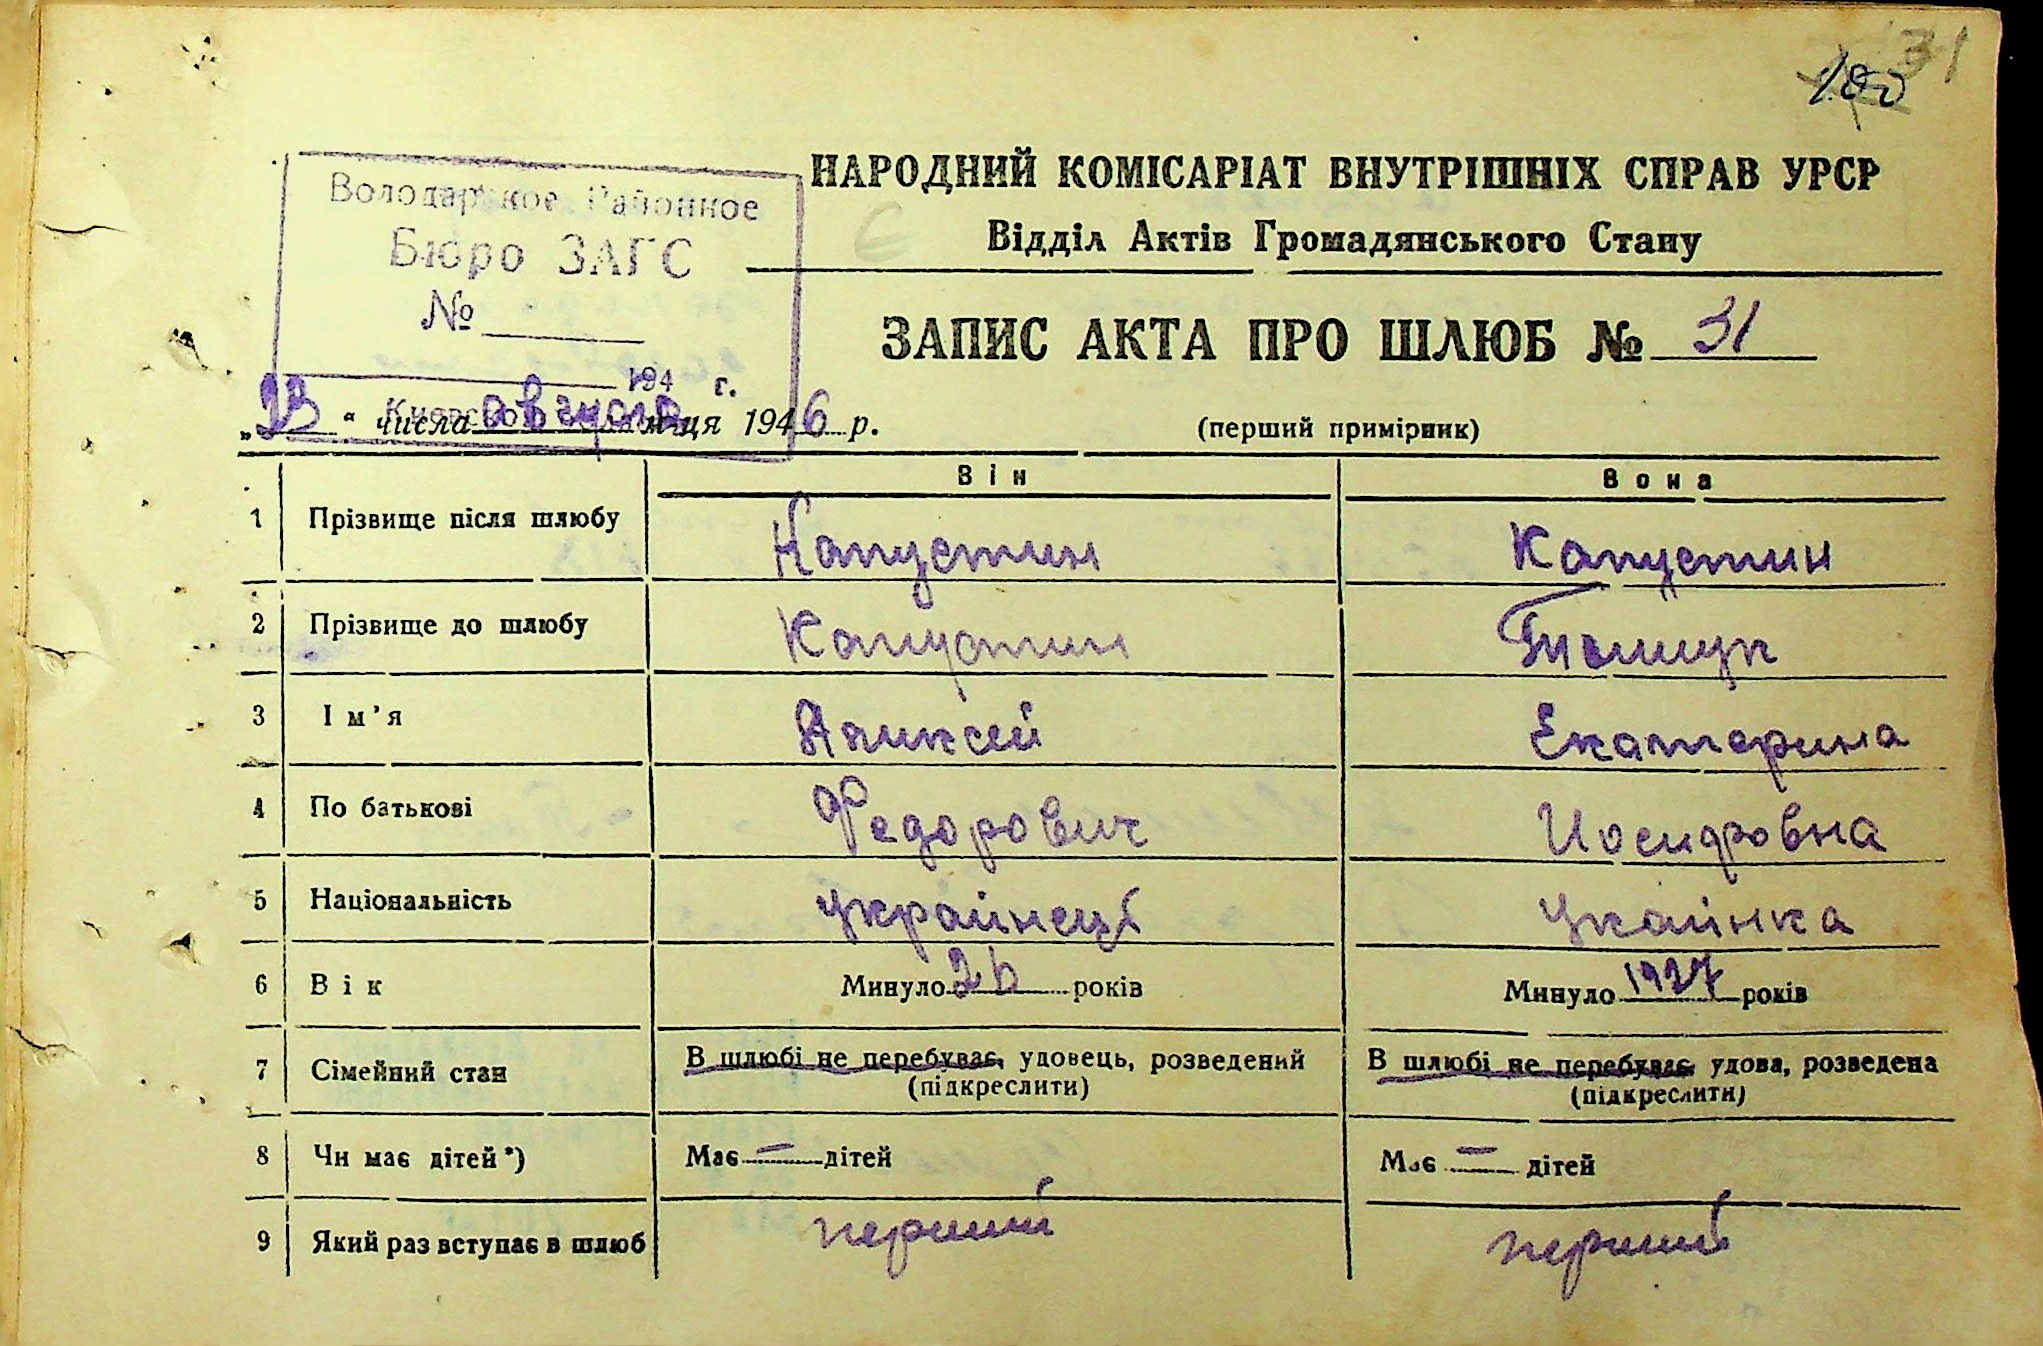 31
100
Володарское Районное
Бюро ЗАГС
№
194 г.
НАРОДНИЙ КОМІСАРІАТ ВНУТРІШНІХ СПРАВ УРСР
Відділ Актів Громадянського Стану
ЗАПИС АКТА ПРО ШЛЮБ № 31
„23“ числа августа місяця 1946 р.
(перший примірник)
Він Вона
1 Прізвище після шлюбу Капустин Капустин
2 Прізвище до шлюбу Капустин
3 Ім'я Алексей Екатерина
4 По батькові Федорович Иосифовна
5 Національність Українець Укаінка
6 Вік Минуло 26 років Минуло 1927 років
7 Сімейний стан В шлюбі не перебуває, удовець, розведений В шлюбі не перебуває, удова, розведена
(підкреслити) (підкреслити)
8 Чи має дітей*) Має — дітей Має — дітей
9 Який раз вступає в шлюб перший перший